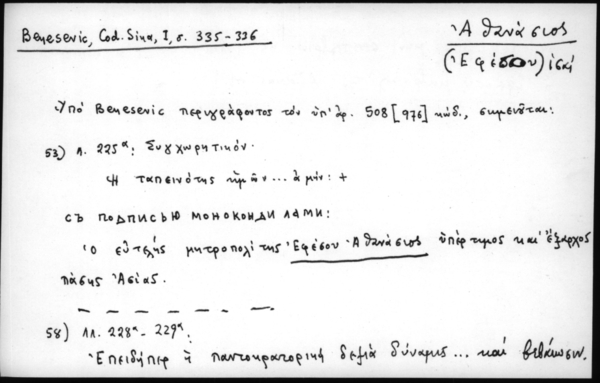 Benesevic, Cod. Sina, I, σ. 335-336
Ἀθανάσιος
(Ἐφέσου)
Ὑπό Benesevic περιγράφοντος τόν ὑπ' ἀρ. 508 [976] κώδ., σημειοῦται:
53) Λ. 225α: Συγχωρητικόν.
Ἡ ταπεινότης ἡμῶν... ἀμήν: +
съ подписью монокондилами:
Ὁ εὐτελής μητροπολίτης Ἐφέσου Ἀθανάσιος ὑπέρτιμος καί ἔξαρχος
πάσης Ἀσίας.
58) ΛΛ. 228α- 229α:
Ἐπειδήπερ ἡ παντοκρατορική δεξιά δύναμις... καί βεβαίωσιν.